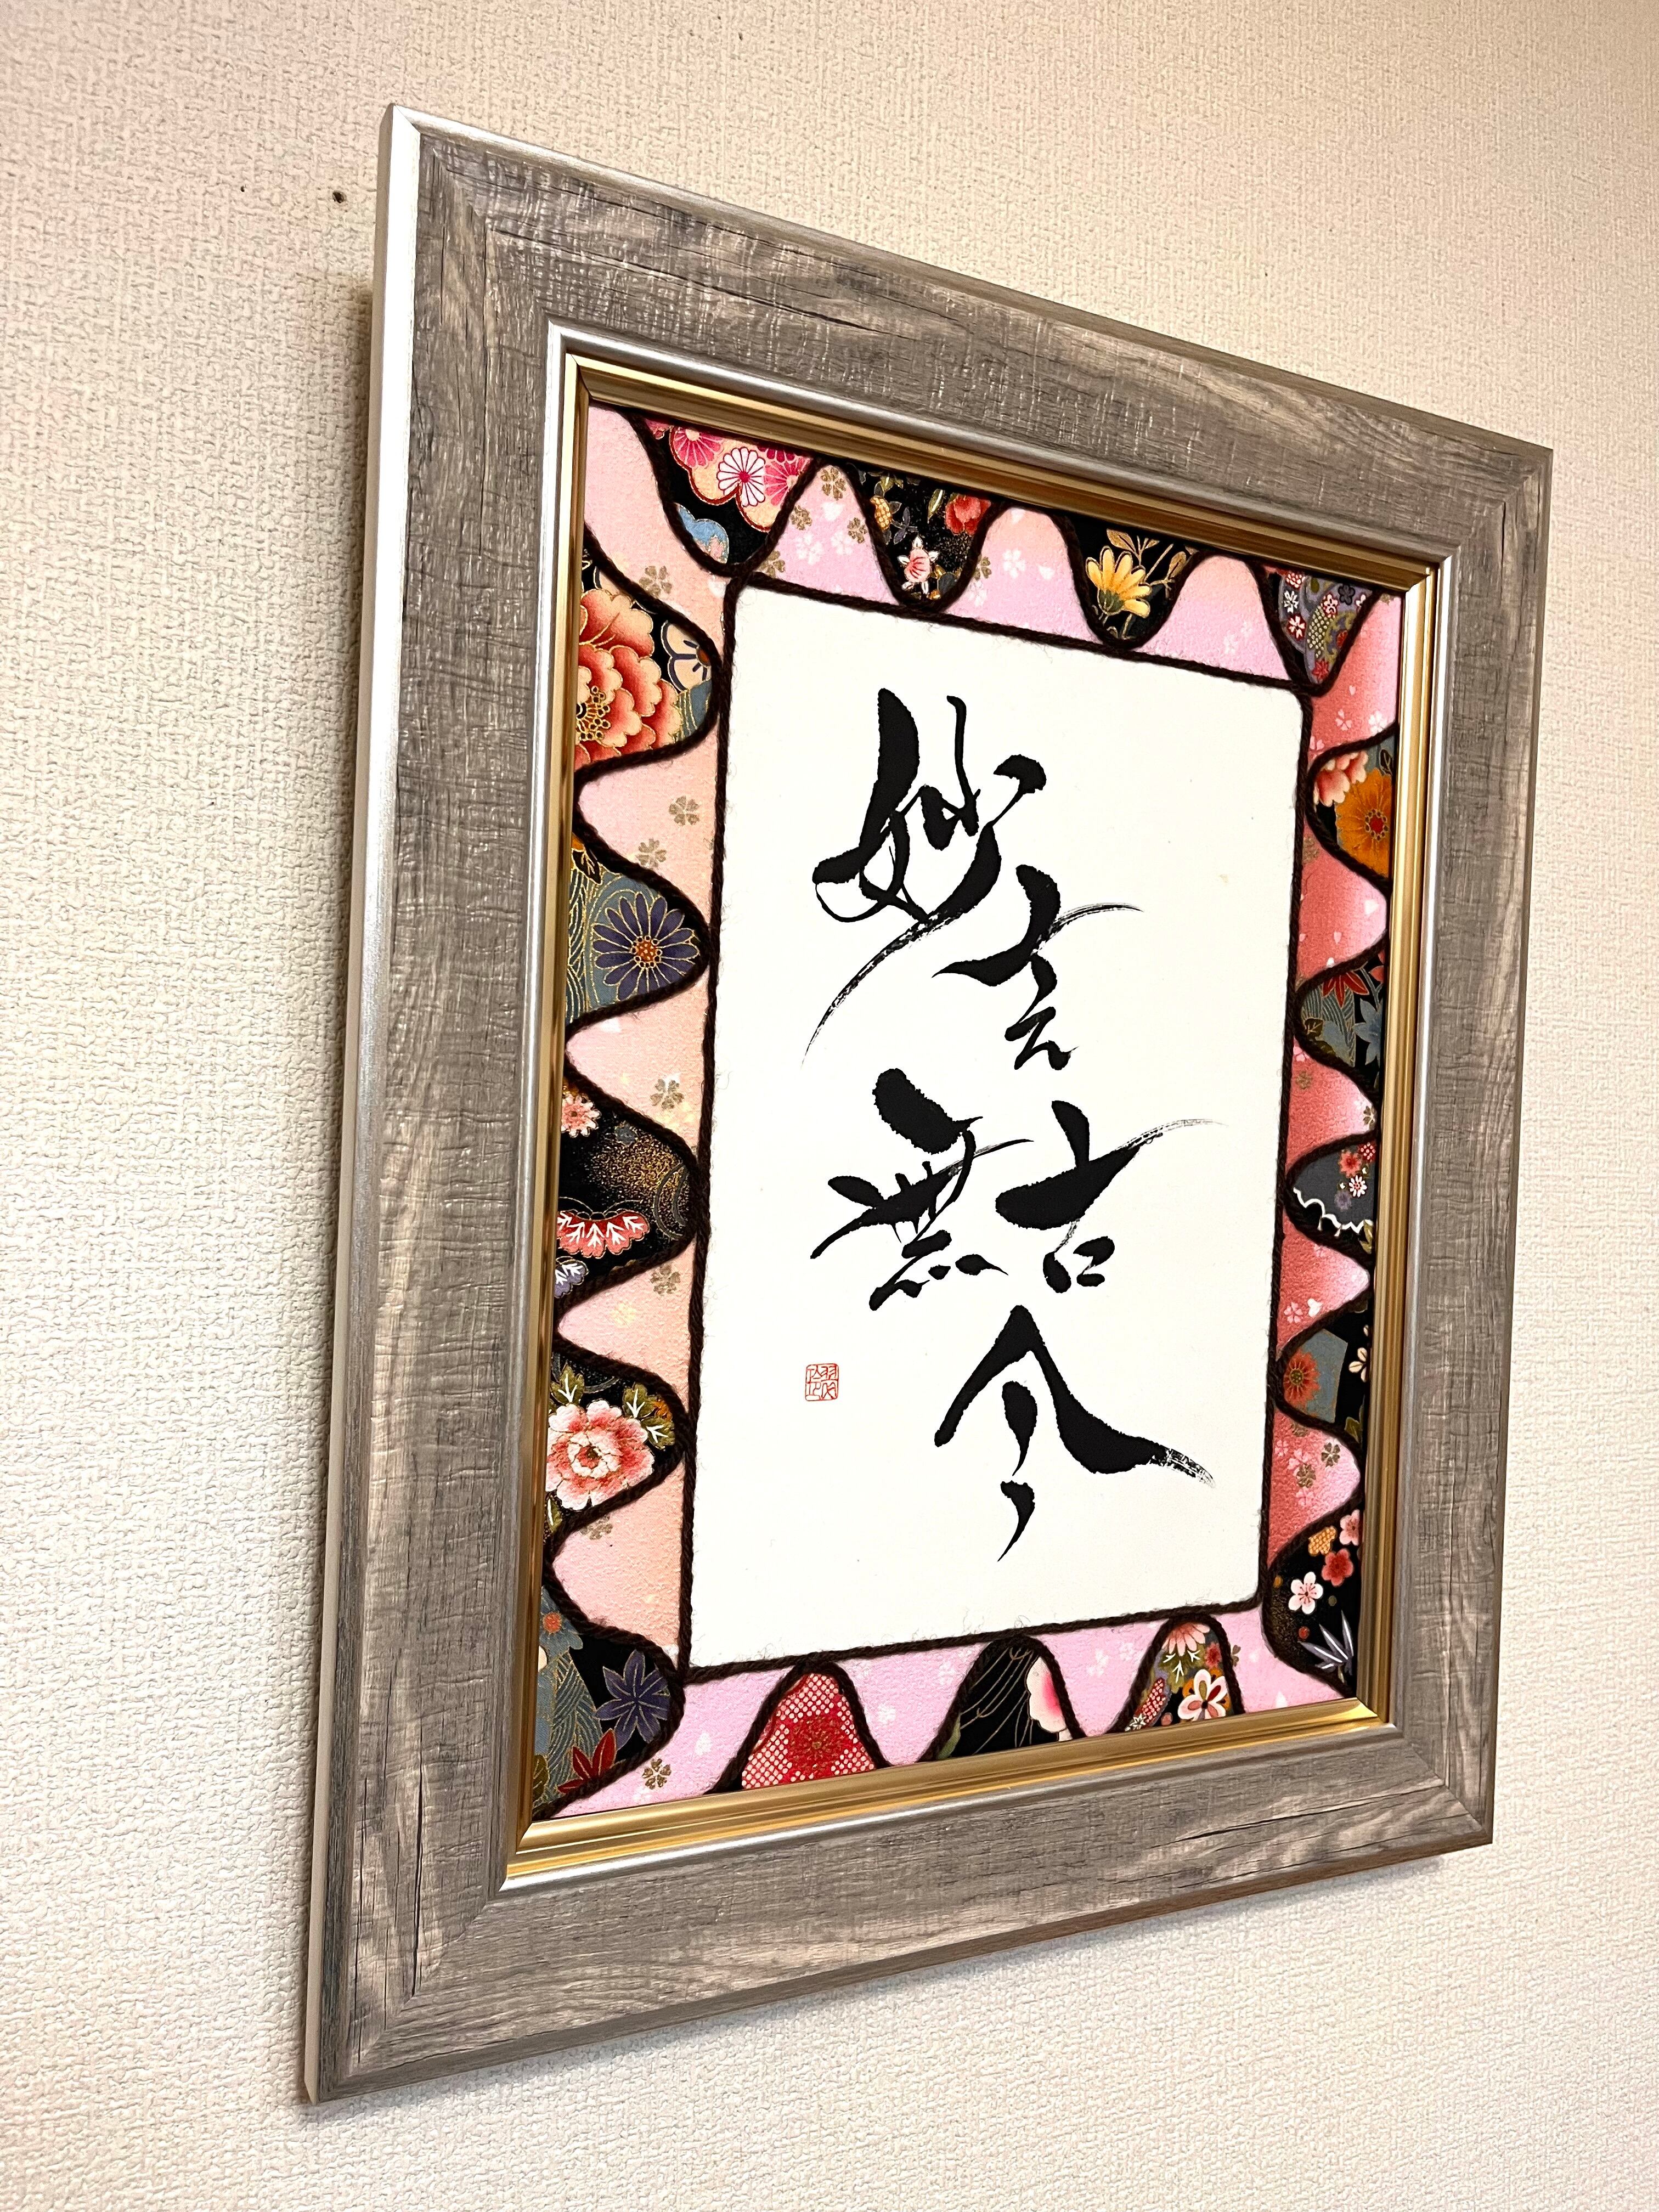 妙玄無古今